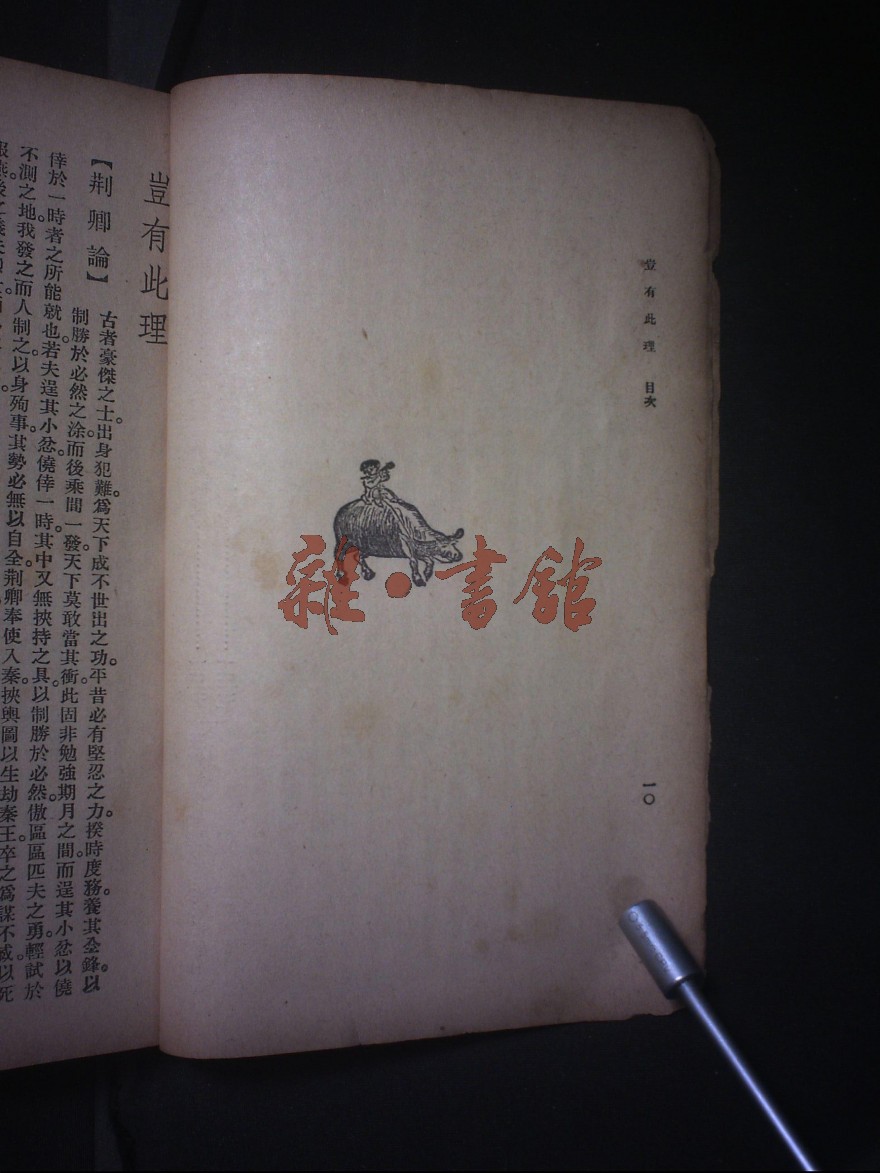 豈有此理 目次
一〇
雜·書館
豈有此理
【荆卿論】 古者豪傑之士。出身犯難。爲天下成不世出之功。平昔必有堅忍之力。揆時度務。養其全鋒。以
制勝於必然之涂。而後乘間一發。天下莫敢當其衝。此固非勉強期月之間。而逞其小忿以僥
倖於一時者之所能就也。若夫逞其小忿。僥倖一時。其中又無挾持之具。以制勝於必然。傲區區匹夫之勇。輕試於
不測之地。我發之而人制之。以身殉事。其勢必無以自全。荆卿奉使入秦。挾輿圖以生劫秦王。卒之爲謀不臧。以死